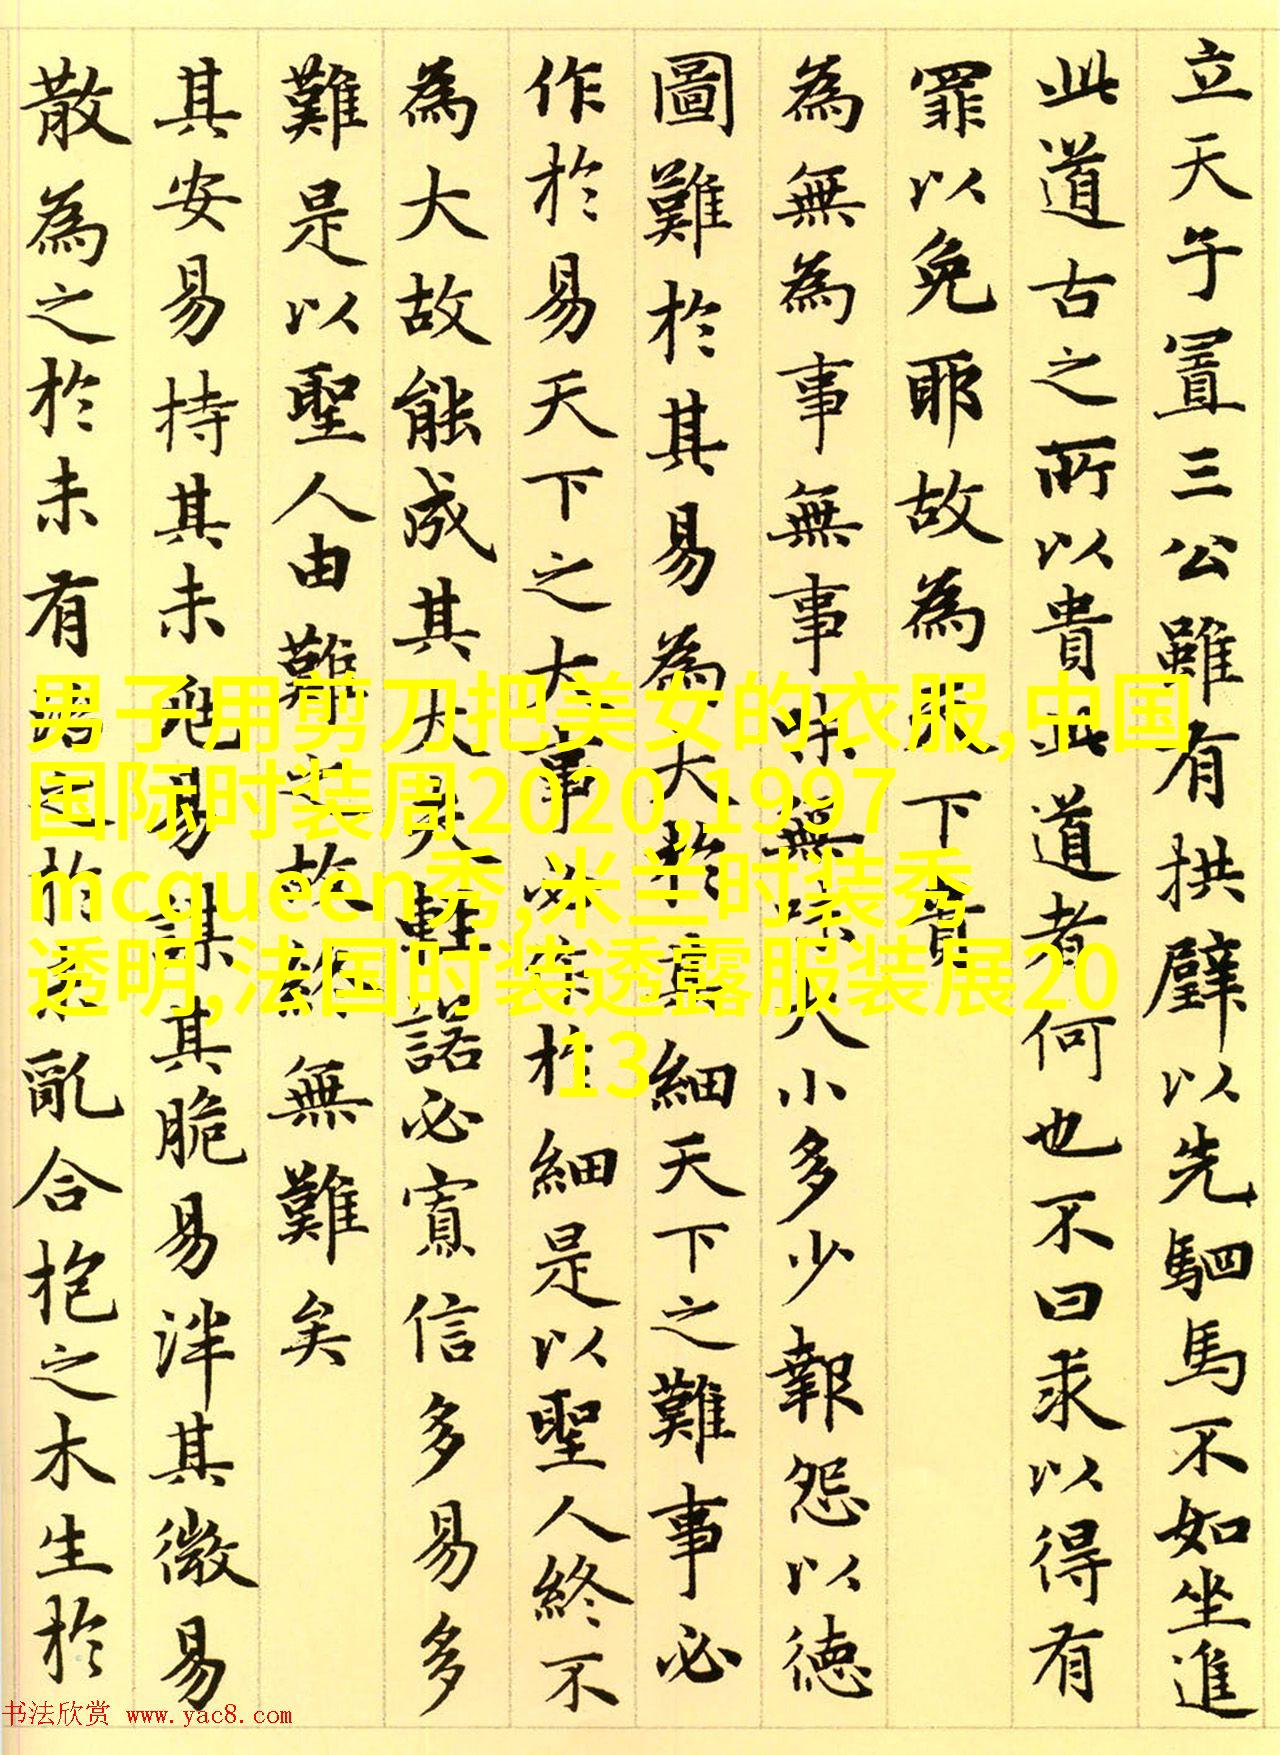 立天子置三公雖有拱璧以先駟馬不如坐進
此道古之所以貴此道者何也不曰求以得有
罪以免耶故為天下貴
為無為事無事味無味大小多少報怨以德
圖難於其易為大於其細天下之難事必
作於易天下之大事必作於細是以聖人終不
為大故能成其大夫輕諾必寡信多易多
難是以聖人由難之故終無難矣
其安易持其未兆易謀其脆易泮其微易
散為之於未有治之於未亂合抱之木生於
男子用剪刀把美女的衣服,中国
国际时装周2020,1997
mcqueen秀,米兰时装秀
透明,法国时装透露服装展20
13
书法欣赏 www.yac8.com